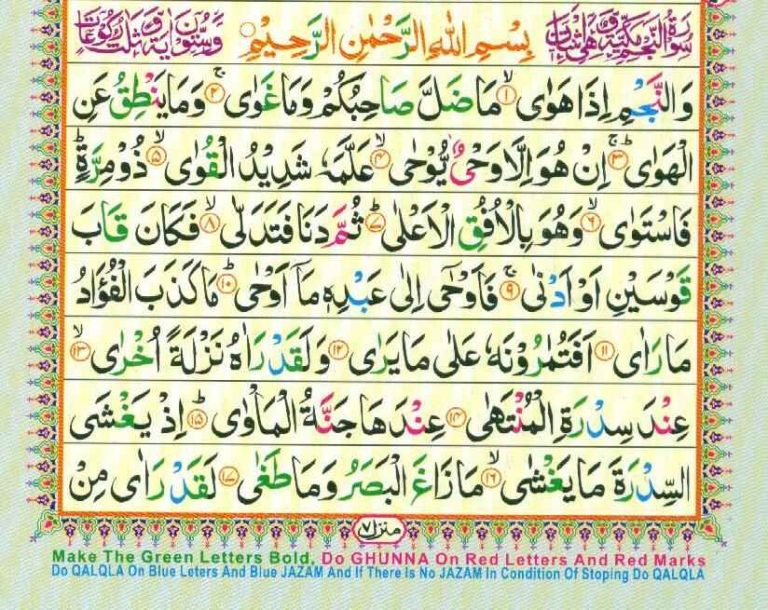 سُوْرَةُ النَّجْمِ مَكِّيَّةٌ وَّهِيَ اثْنَتَانِ بِسْمِ اللهِ الرَّحْمٰنِ الرَّحِيْمِ وَّسِتُّوْنَ اٰيَةً وَّثَلٰثُ رُكُوْعَاتٍ
وَالنَّجْمِ اِذَا هَوٰى ۙ﴿۱﴾ مَا ضَلَّ صَاحِبُكُمْ وَمَا غَوٰى ۚ﴿۲﴾ وَمَا يَنْطِقُ عَنِ
الْهَوٰى ؕ﴿۳﴾ اِنْ هُوَ اِلَّا وَحْىٌ يُّوْحٰى ۙ﴿۴﴾ عَلَّمَهٗ شَدِيْدُ الْقُوٰى ۙ﴿۵﴾ ذُوْ مِرَّةٍ ؕ
فَاسْتَوٰى ۙ﴿۶﴾ وَهُوَ بِالْاُفُقِ الْاَعْلٰى ؕ﴿۷﴾ ثُمَّ دَنَا فَتَدَلّٰى ۙ﴿۸﴾ فَكَانَ قَابَ
قَوْسَيْنِ اَوْ اَدْنٰى ۚ﴿۹﴾ فَاَوْحٰۤى اِلٰى عَبْدِهٖ مَاۤ اَوْحٰى ؕ﴿۱۰﴾ مَا كَذَبَ الْفُؤَادُ
مَا رَاٰى ﴿۱۱﴾ اَفَتُمٰرُوْنَهٗ عَلٰى مَا يَرٰى ﴿۱۲﴾ وَلَقَدْ رَاٰهُ نَزْلَةً اُخْرٰى ۙ﴿۱۳﴾
عِنْدَ سِدْرَةِ الْمُنْتَهٰى ﴿۱۴﴾ عِنْدَهَا جَنَّةُ الْمَاْوٰى ؕ﴿۱۵﴾ اِذْ يَغْشَى
السِّدْرَةَ مَا يَغْشٰى ۙ﴿۱۶﴾ مَا زَاغَ الْبَصَرُ وَمَا طَغٰى ﴿۱۷﴾ لَقَدْ رَاٰى مِنْ
منزل ۷
Make The Green Letters Bold, Do GHUNNA On Red Letters And Red Marks
Do QALQLA On Blue Leters And Blue JAZAM And If There Is No JAZAM In Condition Of Stoping Do QALQLA